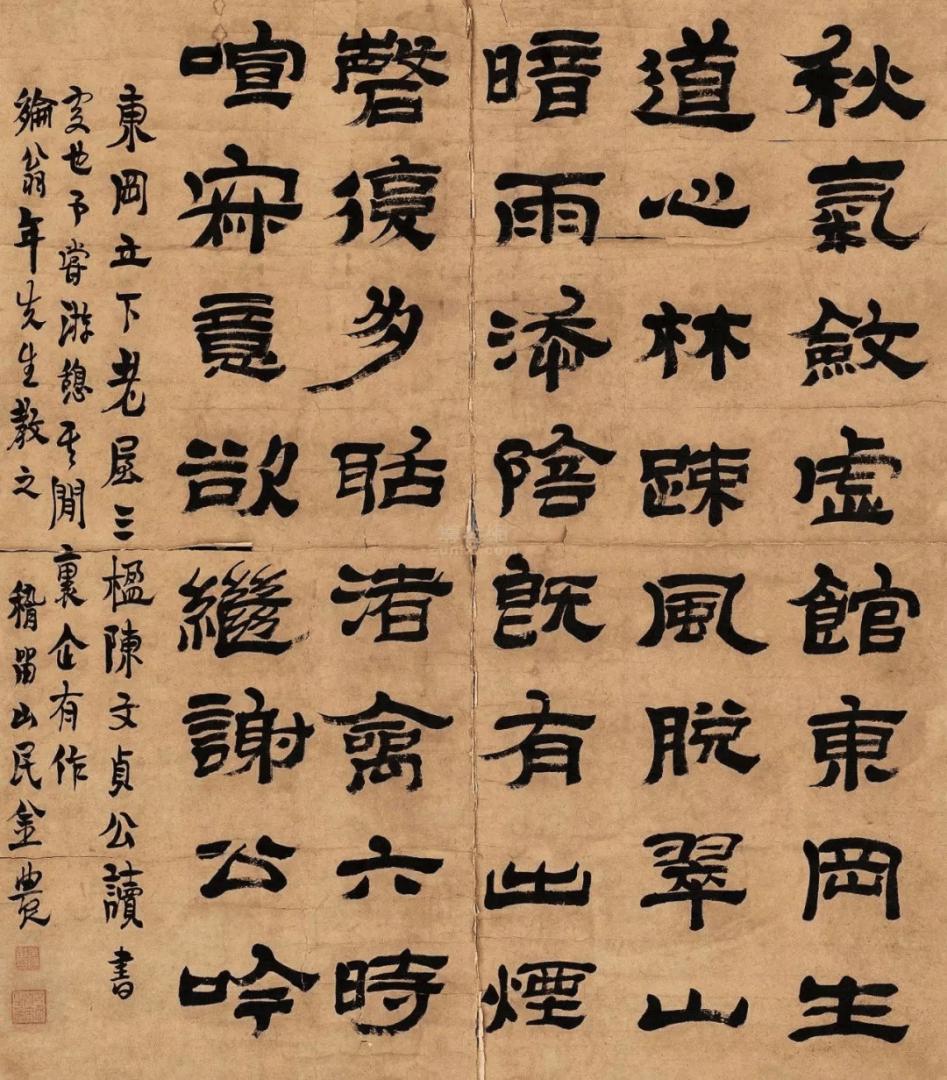 秋氣斂虛館東岡生
道心林疎風脫翠山
暗雨添陰既有出煙
磬復多聒渚禽六時
喧寂意欲繼謝公吟
東岡立下老屋三楹陳文貞公讀書
處也予嘗游憩其閒褱企有作
綸翁年先生教之 稽留山民金農